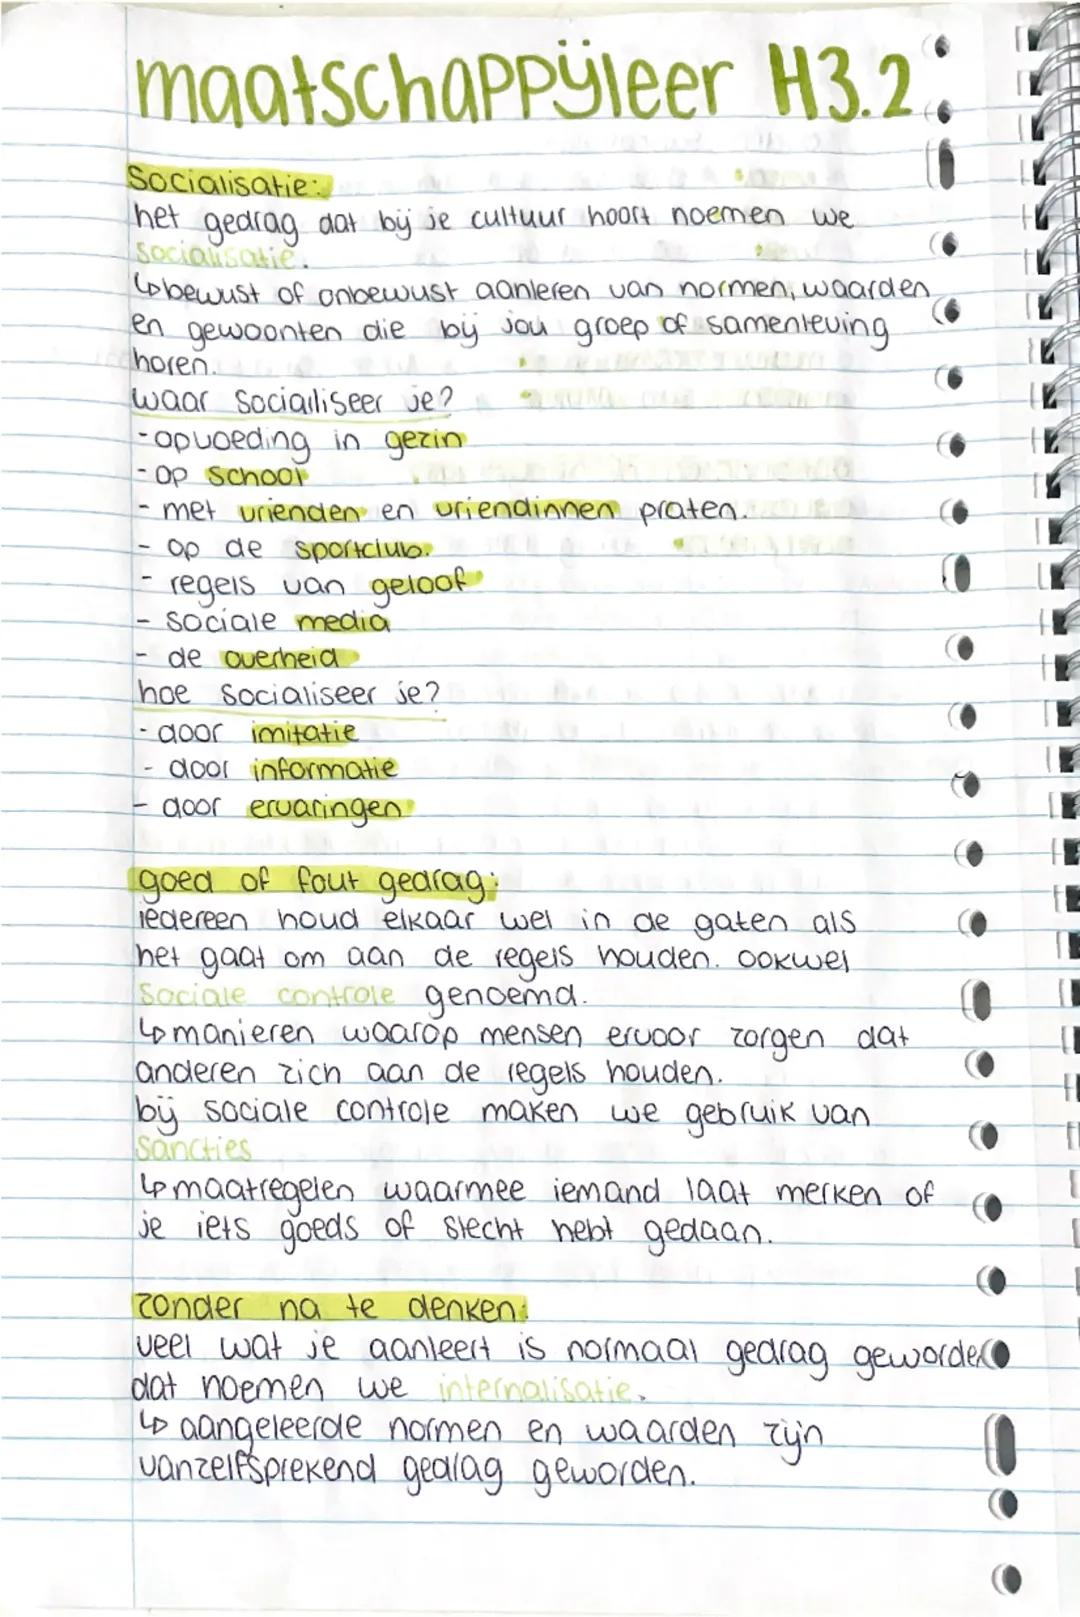 maatschappÿleer H3.2
Socialisatie:
het gedrag dat bij je cultuur hoort noemen we
socialisatie.
↳bewust of onbewust aanleren van normen, waarden
en gewoonten die bij jou groep of samenleving
horen.
waar Socialiseer je?
- opvoeding in gezin
- op school
- met vrienden en vriendinnen praten.
- op de sportclub.
- regels van geloof
- sociale media
- de overheid
hoe Socialiseer je?
- door imitatie
- door informatie
- door ervaringen
goed of fout gedrag:
iedereen houd elkaar wel in de gaten als
het gaat om aan de regels houden. ookwel
Sociale controle genoemd.
↳manieren waarop mensen ervoor zorgen dat
anderen zich aan de regels houden.
bij sociale controle maken we gebruik van
Sancties
↳maatregelen waarmee iemand laat merken of
je iets goeds of slecht hebt gedaan.
zonder na te denken:
veel wat je aanleert is normaal gedrag geworden
dat noemen we internalisatie.
↳ aangeleerde normen en waarden zijn
vanzelfsprekend gedrag geworden.